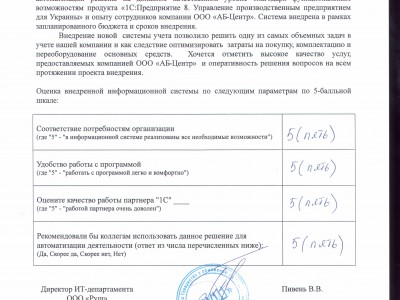 возможностям продукта «1С:Предприятие 8. Управление производственным предприятием
для Украины» и опыту сотрудников компании ООО «АБ-Центр». Система внедрена в рамках
запланированного бюджета и сроков внедрения.
Внедрение новой системы учета позволило решить одну из самых объемных задач в
учете нашей компании и как следствие оптимизировать затраты на покупку, комплектацию и
переоборудование основных средств. Хочется отметить высокое качество услуг,
предоставляемых компанией ООО «АБ-Центр» и оперативность решения вопросов на всем
протяжении проекта внедрения.
Оценка внедренной информационной системы по следующим параметрам по 5-балльной
шкале:
Соответствие потребностям организации
(где "5" - "в информационной системе реализованы все необходимые возможности")
5 (пять)
Удобство работы с программой
(где "5" - "работать с программой легко и комфортно")
5 (пять)
Оцените качество работы партнера "1С" ____
(где "5" - "работой партнера очень доволен")
5 (пять)
Рекомендовали бы коллегам использовать данное решение для
автоматизации деятельности (ответ из числа перечисленных ниже):
(Да, Скорее да, Скорее нет, Нет)
5 (пять)
Директор ИТ-департамента
Пивень В.В.
ООО «Руш»